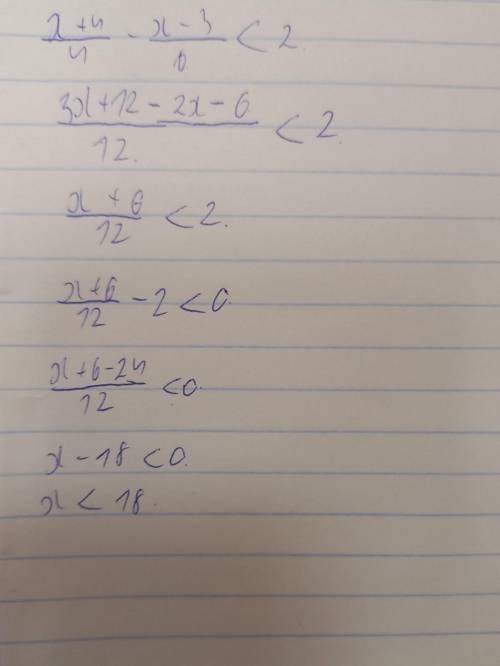 (x+4)/4 - (x-3)/6 < 2.
(3x+12-2x-6)/12. < 2.
(x+6)/12 < 2.
(x+6)/12 - 2 < 0.
(x+6-24)/12 < 0.
x - 18 < 0.
x < 18.